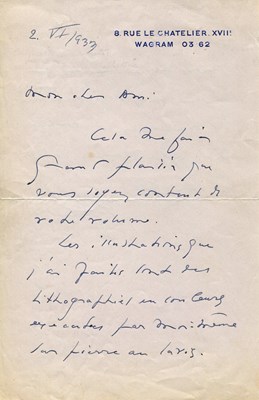 2. VI/1937
8. RUE LE CHATELIER. XVIIᵉ
WAGRAM 03 62
Mon cher Ami
Cela me fait
grand plaisir que
vous soyez content de
votre volume.
Les illustrations que
j'ai faites sont des
lithographies en couleurs
exécutées par moi-même
sur pierre au lavis.